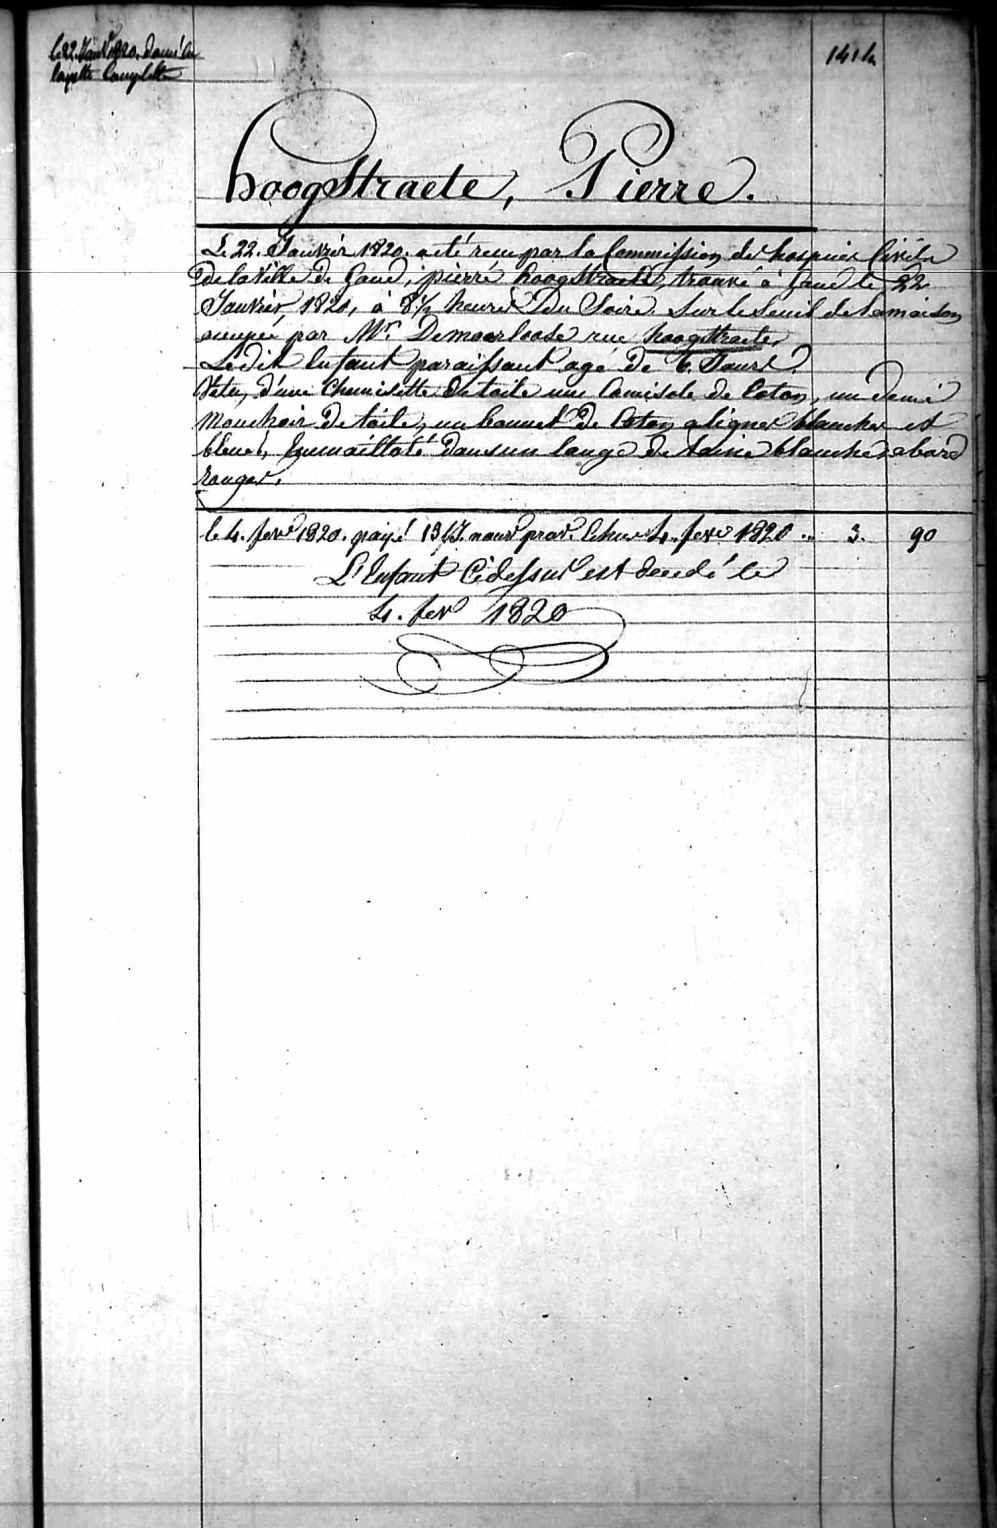 le 22. Janv 1820. donné la
layette Complette
141
hoogstraete, Pierre.
Le 22. Janvier 1820. a été recu par la Commission des hospices Civils
de la Ville de Gand, pierre hoogstraete, trouvé à Gand le 22
Janvier 1820, à 8 1/2 heures Du Soire Sur le Seuil de la maison
occupée par Mr. Demoorloose rue hoogstraete,
Ledit Enfant paraissant agé de 6 Jours
Vetu, d'une Chemisette de toile une Camisole de Coton, un demi
Mouchoir de toile, un bonnet de Coton a lignes blanches et
bleues, Emmailloté dans un lange de blanche a bord
rouge.
le 4. fevr 1820. payé 13 Js. nourr prov. Echue 4. fevr 1820 .. 3. 90
L'Enfant Cidessus est decedé le
4. fevr 1820